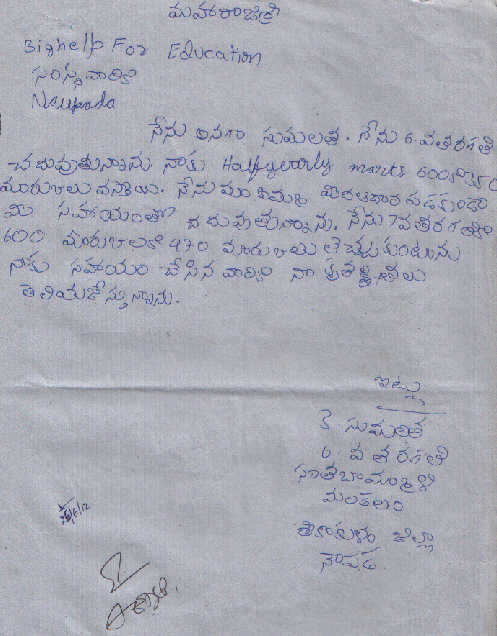 మహారాజశ్రీ
Bighelp For Education
సంస్థ వారికి
Naupada
నేను సుమలత. నేను 6 వతరగతి
చదువుతున్నాను నాకు Halfyearly marks 600కు
మారుకులు వచ్చాయి. నేను మా
మీ సహాయంతో చదువుతున్నాను. నేను 7వతరగతిలో
600 మారుకులకు 470 మారుకులు తెచ్చుకుంటును
నాకు సహాయం చేసిన వారికి నా కృతజ్ఞతలు
తెలియజేస్తున్నాను.
ఇట్లు
సుమలత
6 వ తరగతి
సంతబొమ్మాళి
మండలం
శ్రీకాకుళం జిల్లా
నౌపడ.